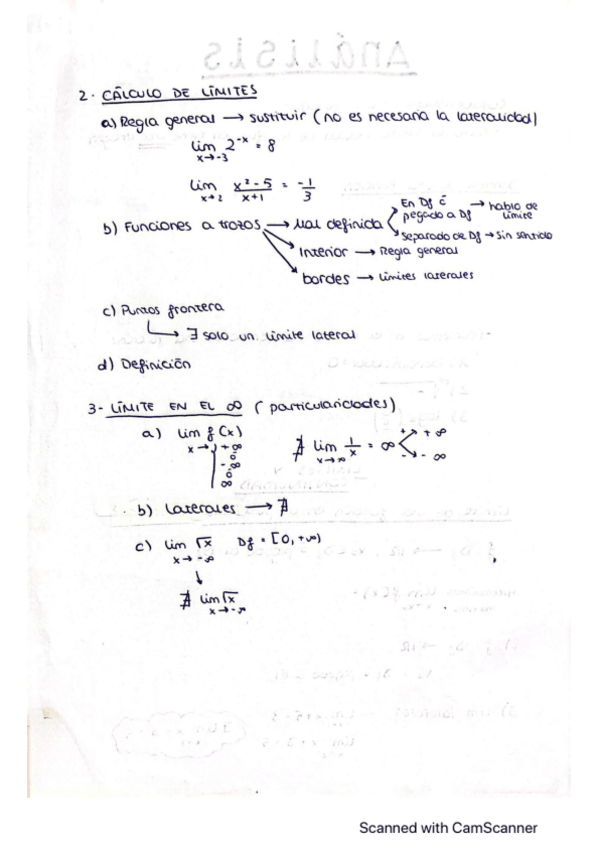 2. CÁLCULO DE LÍMITES
a) Regla general → sustituir (no es necesaria la lateralidad)
lim 2^-x = 8
x→-3
lim x²-5 / x+1 = -1/3
x→2
b) Funciones a trozos → Mal definida
En Df ó pegado a Df → hablo de límite
Separado de Df → Sin sentido
Interior → Regla general
bordes → Límites laterales
c) Puntos frontera
→ ∃ solo un límite lateral
d) Definición
3- LÍMITE EN EL ∞ (particularidades)
a) lim f(x)
x→ +∞
ó
-∞
ó
∞
∄ lim 1/x = ∞
x→∞
+ → +∞
- → -∞
b) laterales → ∄
c) lim √x Df = [0, +∞)
x→-∞
∄ lim √x
x→-∞
Scanned with CamScanner